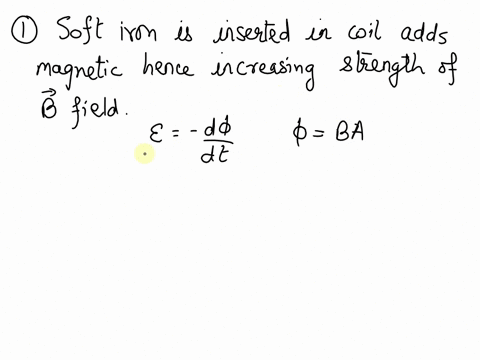 ① Soft iron is inserted in coil adds
magnetic hence increasing strength of
B⃗ field.
ε = -dϕ/dt ϕ = BA